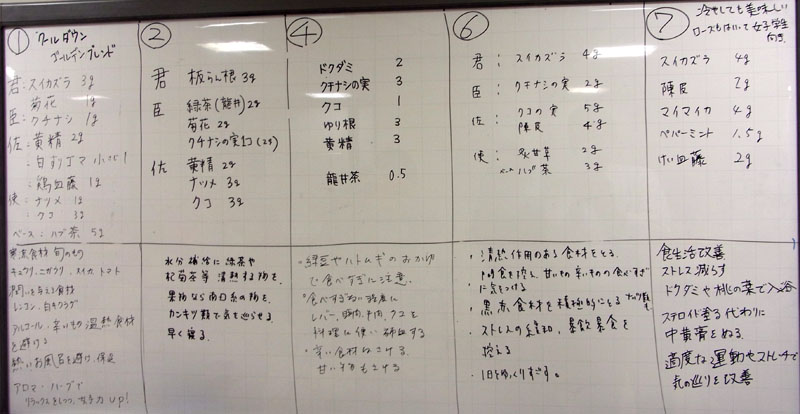 ①
クールダウン
ゴールデンブレンド
君:スイカズラ 3g
菊花 1g
臣:クチナシ 1g
佐:黄精 2g
:白すりゴマ 小さじ1
:鶏血藤 1g
使:ナツメ 1g
:クコ 3g
ベース:ハブ茶 5g
寒涼食材 旬のもの
キュウリ、ニガウリ、スイカ、トマト
潤いを与える食材
レンコン、白キクラゲ
アルコール・辛いもの 温熱食材
を避ける
熱いお風呂を避け、保湿
アロマ・ハーブで
リラックスをしつつ、女子力up!
②
君 板らん根 3g
臣 緑茶(龍井)2g
菊花 2g
クチナシの実1コ(2g)
佐 黄精 2g
ナツメ 3g
クコ 3g
水分補給に緑茶や
杞菊茶等 清熱する物を。
果物なら南国系の物を。
カンキツ類で気を巡らせる
早く寝る。
④
ドクダミ 2
クチナシの実 3
クコ 1
ゆり根 3
黄精 3
龍井茶 0.5
・緑豆やハトムギのおかゆ
で食べすぎに注意。
・食べすぎない程度に
レバー、豚肉、牛肉、クコを
料理に使い補血する
・辛い食材はさける。
甘い物もさける
⑥
君: スイカズラ 4g
臣: クチナシの実 2g
佐: クコの実 5g
陳皮 4g
使: 炙甘草 2g
ベース ハブ茶 3g
・清熱作用のある食材をとる。
間食を控え、甘いもの辛いもの食べすぎ
に気をつける
・黒、赤食材を積極的にとる ナッツ類も
・ストレスの緩和、暴飲暴食を
控える
・1日をゆっくりすごす。
⑦
冷やしても美味しい
ローズもはいって女子学生
向き
スイカズラ 4g
陳皮 2g
マイマイカ 4g
ペパーミント 1.5g
けい血藤 2g
食生活改善
ストレス減らす
ドクダミや桃の葉で入浴
ステロイド塗る代わりに
中黄膏をぬる。
適度な運動やストレッチで
気の巡りを改善